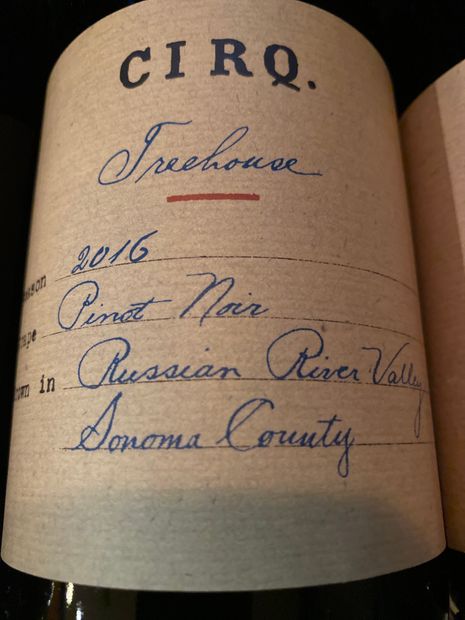 CIRQ.
Treehouse
2016
Pinot Noir
own in Russian River Valley
Sonoma County